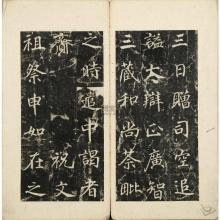 三日贈司空追
謚大辯正廣智
三藏和尚荼毗
之時遣中謁者
齎 祝文
祖祭申如在之